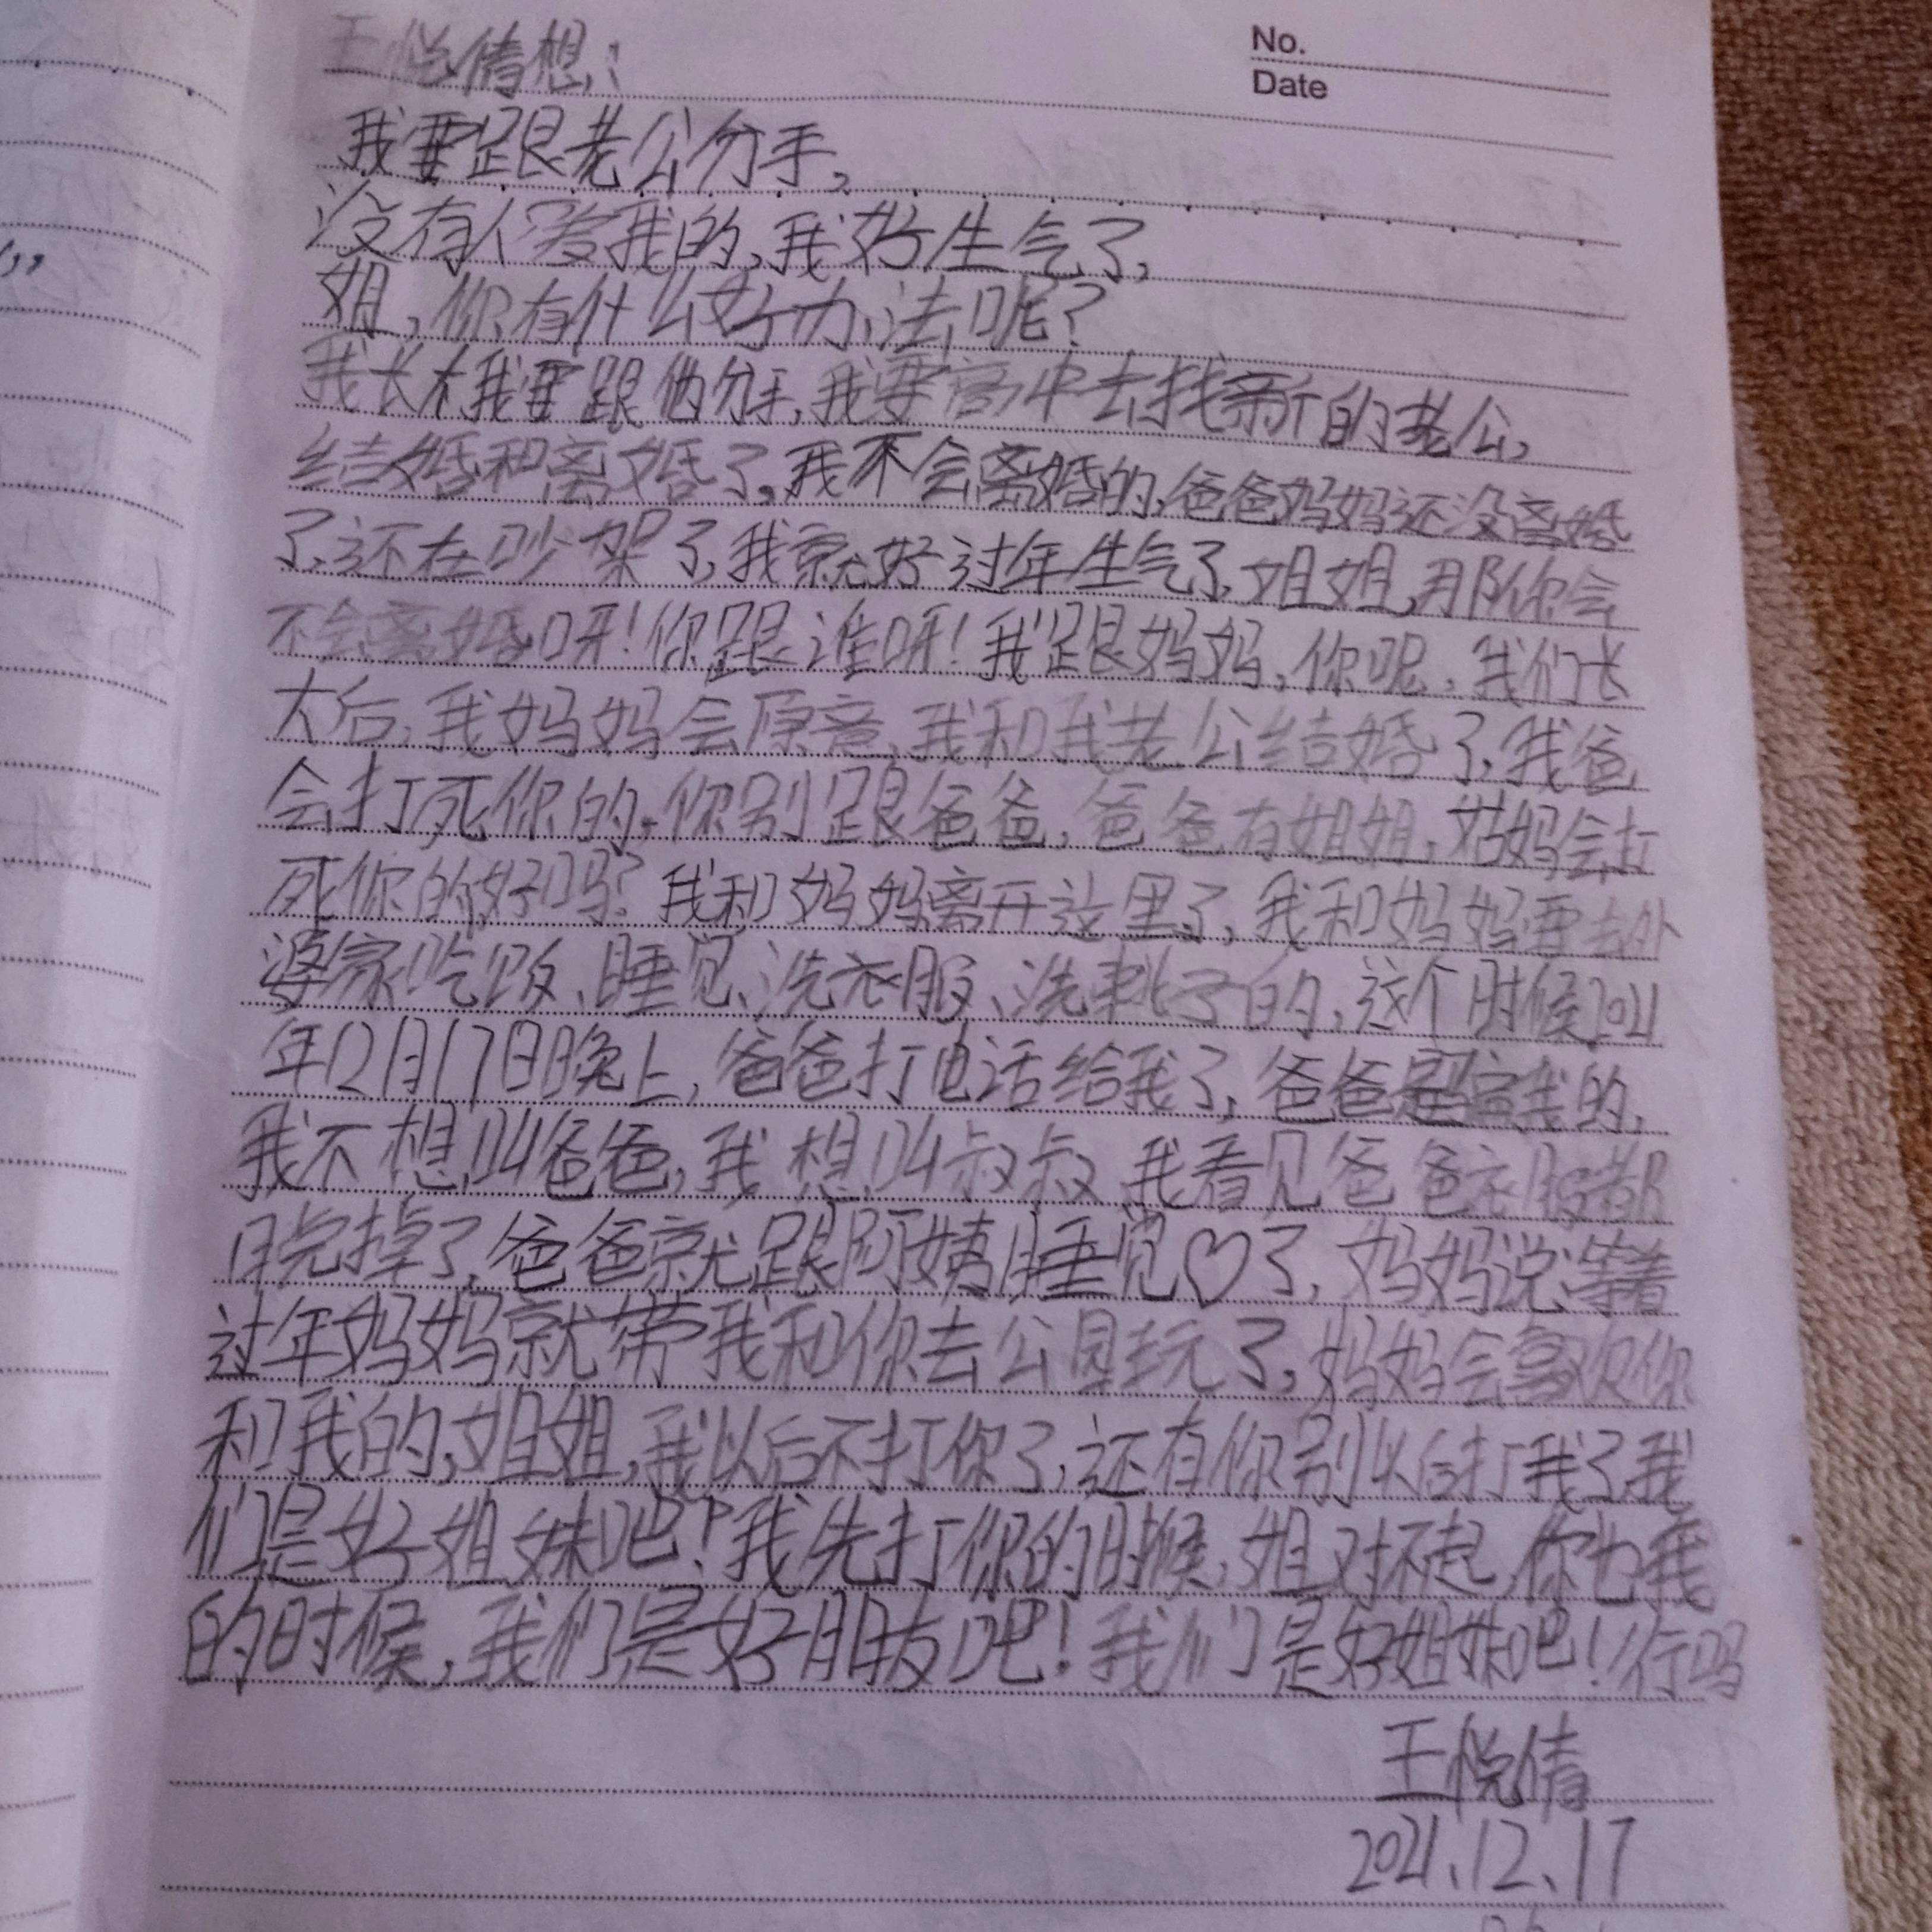 No.
Date
王悦倩想：
我要跟老公分手，
没有人爱我的，我好生气了，
姐，你有什么好办法呢？
我长大我要跟他分手，我要高中去找新的老公，
结婚和离婚了，我不会离婚的，爸爸妈妈还没离婚
了，还在吵架了，我就好过年生气了，姐姐，那你会
不会离婚呀！你跟谁呀！我跟妈妈，你呢，我们长
大后，我妈妈会原意，我和我老公结婚了，我爸
会打死你的，你别跟爸爸，爸爸有姐姐，姑妈会打
死你的好吗？我和妈妈离开这里了，我和妈妈要去外
婆家吃饭、睡觉、洗衣服、洗桃子的，这个时候2021
年12月17日晚上，爸爸打电话给我了，爸爸是我的，
我不想叫爸爸，我想叫叔叔，我看见爸爸衣服都
脱掉了，爸爸就跟阿姨睡觉♡了，妈妈说：等着
过年妈妈就带我和你去公园玩了，妈妈会喜欢你
和我的，姐姐，我以后不打你了，还有你别以后打我了我
们是好姐妹吧！我先打你的时候，姐对不起，你也我
的时候，我们是好朋友吧！我们是好姐妹吧！行吗
王悦倩
2021.12.17